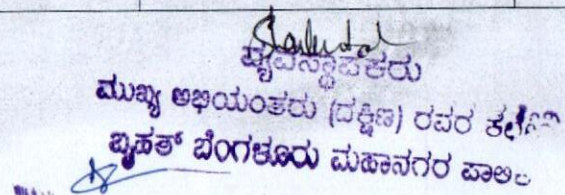 ವ್ಯವಸ್ಥಾಪಕರು
ಮುಖ್ಯ ಅಭಿಯಂತರು (ದಕ್ಷಿಣ) ರವರ
ಬೃಹತ್ ಬೆಂಗಳೂರು ಮಹಾನಗರ ಪಾಲಿ